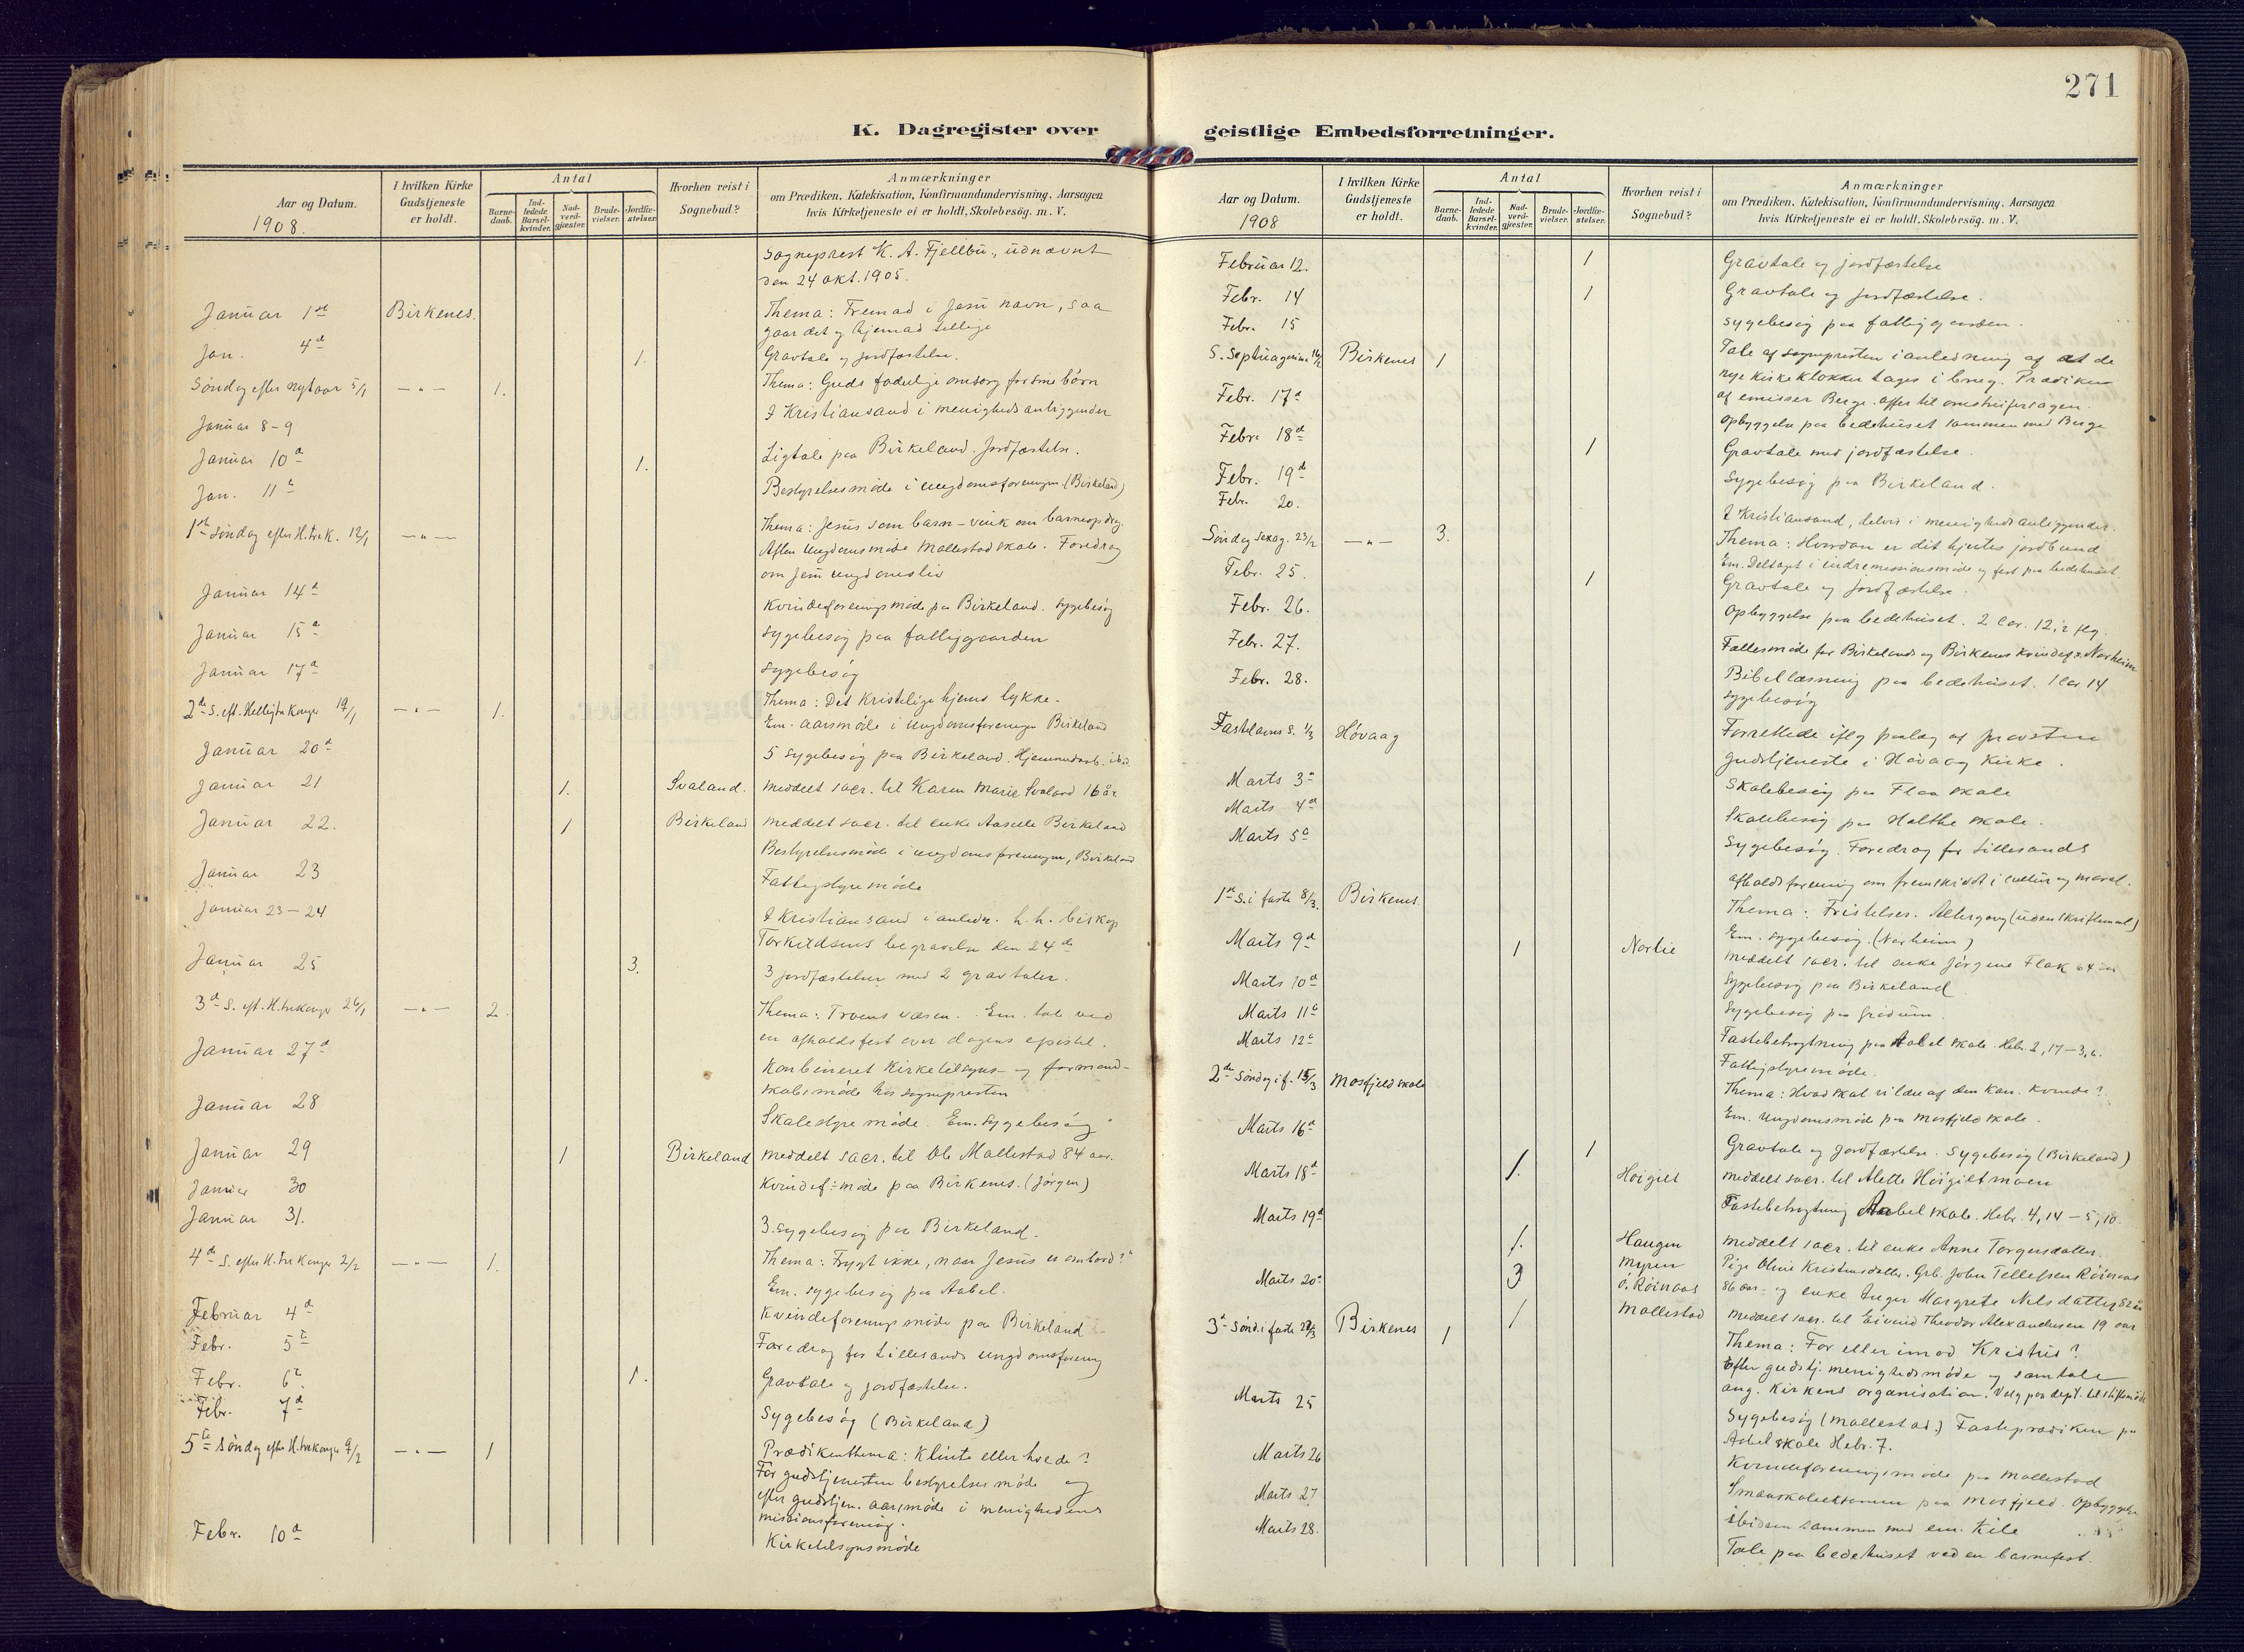 271
K. Dagregister over
geistlige Embedsforretninger.
Aar og Datum.
1908.
I hvilken Kirke Gudstjeneste er holdt.
Antal
Barnedaab.
Indledede Barselkvinder.
Nadverdgjæster.
Brudevielser.
Jordfæstelser.
Hvorhen reist i Sognebud?
Anmærkninger
om Prædiken, Katekisation, Konfirmandundervisning, Aarsagen
hvis Kirketjeneste ei er holdt, Skolebesøg. m. V.
Sogneprest K. A. Fjellbu, udnævnt
den 24 okt. 1905.
Januar 1ste Birkenes. Thema: Fremad i Jesu navn, saa
gaar det og hjemad tillige
Jan. 4de 1. Gravtale og jordfæstelse.
Søndag efter nytaar 5/1 — " — 1. Thema: Guds faderlige omsorg for sine børn
Januar 8-9 I Kristiansand i menighedsanliggender
Januar 10de 1. Ligtale paa Birkeland. Jordfæstelse.
Jan. 11te Bestyrelsesmøde i ungdomsforeningen (Birkeland)
1ste Søndag efter H.trek. 12/1 — " — Thema: Jesus som barn – vink om barneopdrag.
Aften Ungdomsmøde Mollestad skole. Foredrag
om Jesu ungdomsliv
Januar 14de Kvindeforeningsmøde paa Birkeland. Sygebesøg
Januar 15de Sygebesøg paa fattiggaarden
Januar 17de Sygebesøg
2den S. eft. Helligtrekonger 19/1 — " — 1. Thema: Det kristelige hjems lykke.
Em. aarsmøde i Ungdomsforeningen Birkeland
Januar 20de 5 sygebesøg paa Birkeland.
Januar 21 1. Svaland. Meddelt sacr. til Karen Marie Svaland 16 år
Januar 22. 1 Birkeland Meddelt sacr. til enke Birkeland
Bestyrelsesmøde i ungdomsforeningen, Birkeland
Januar 23 Fattigstyremøde
Januar 23-24 I Kristiansand i anledn. h. h. biskop
Torkildsens begravelse den 24de
Januar 25 3. 3 jordfæstelser med 2 gravtaler.
3de S. eft. H.trekonger 26/1 — " — 2. Thema: Troens væsen. Em. tale ved
en afholdsfest over dagens epistel.
Januar 27de Kombineret Kirketilsyns- og formand-
skabsmøde hos sognepresten
Januar 28 Skolestyremøde. Em. Sygebesøg
Januar 29 1 Birkeland Meddelt sacr. til Ole Mollestad 84 aar.
Januar 30 Kvindef. møde paa Birkenes. (Jørgen)
Januar 31. 3 sygebesøg paa Birkeland.
4de S. efter H.trekonger 2/2 — " — 1. Thema: Frygt ikke, naar Jesus er ombord!
Em. sygebesøg paa Aabel.
Februar 4de Kvindeforeningsmøde paa Birkeland
Febr. 5te Foredrag for Lillesands ungdomsforening
Febr. 6te 1. Gravtale og jordfæstelse.
Febr. 7de Sygebesøg (Birkeland)
5te Søndag efter H.trekonger 9/2 — " — 1 Prædikenthema: Klinte eller hvede?
Før gudstjenesten bestyrelsesmøde og
efter gudstjen. aarsmøde i menighedens
missionsforening.
Febr. 10de Kirketilsynsmøde
Aar og Datum.
1908
I hvilken Kirke Gudstjeneste er holdt.
Antal
Barnedaab.
Indledede Barselkvinder.
Nadverdgjæster.
Brudevielser.
Jordfæstelser.
Hvorhen reist i Sognebud?
Anmærkninger
om Prædiken, Katekisation, Konfirmandundervisning, Aarsagen
hvis Kirketjeneste ei er holdt, Skolebesøg. m. V.
Februar 12. 1 Gravtale og jordfæstelse
Febr. 14 1 Gravtale og jordfæstelse.
Febr. 15 Sygebesøg paa fattiggaarden.
S. Septuagesima 16/2 Birkenes 1 Tale af sognepresten i anledning af at de
nye kirkeklokker tages i brug. Prædiken
af emissær Berge.
Febr. 17de Opbyggelse paa bedehuset sammen med Berge
Febr. 18de 1 Gravtale med jordfæstelse.
Febr. 19de Sygebesøg paa Birkeland.
Febr. 20. I Kristiansand, delvis i menighedsanliggender.
Søndag Sexag. 23/2 — " — 3. Thema: Hvordan er dit hjertes jordbund
Em. Deltaget i indremissionsmøde og fest paa bedehuset.
Febr. 25. 1 Gravtale og jordfæstelse.
Febr. 26. Opbyggelse paa bedehuset. 2 Cor. 12,2 flg.
Febr. 27. Fællesmøde for Birkelands og Birkenes kvindef. Norheim
Febr. 28. Bibellæsning paa bedehuset. 1 Cor. 14
Sygebesøg
Fastelavns S. 1/3 Høvaag Forrettede iflg paalæg af provsten
gudstjeneste i Høvaag Kirke.
Marts 3de Skolebesøg paa Flaa skole
Marts 4de Skolebesøg paa Holthe skole.
Marts 5te Sygebesøg. Foredrag for Lillesands
afholdsforening om fremskridt i cultur og moral.
1ste S. i faste 8/3. Birkenes. Thema: Fristelser. Altergang (uden skriftemaal)
Em. sygebesøg. (Norheim)
Marts 9de 1 Norlie Meddelt sacr. til enke Jørgine Flak 64 aar
Marts 10de Sygebesøg paa Birkeland
Marts 11te Sygebesøg paa
Marts 12te Fastebetragtning paa Aabel skole. Hebr. 2, 17-3, 6.
Fattigstyremøde.
2den Søndag i f. 15/3 Mosfjeld skole Thema: Hvad skal vi lære af den kan. kvinde?
Em. Ungdomsmøde paa Mosfjeld skole.
Marts 16de 1 Gravtale og jordfæstelse. Sygebesøg (Birkeland)
Marts 18de 1. Høigilt Meddelt sacr. til Alette Høigiltmoen
Marts 19de Fastebetragtning Aabel skole. Hebr. 4, 14 – 5, 10.
1. Haugen Meddelt sacr. til enke Anne Torgersdatter.
Marts 20de 3 Myren Pige Oline Kristensdatter. Grb. John Tellefsen Røinaas
ø. Røinaas 86 aar – og enke Inger Margrete Nilsdatter 82 år
1 Mollestad Meddelt sacr. til Eivind Theodor Alexandersen 19 aar
3de Sønd. i faste 22/3 Birkenes 1 Thema: For eller imod Kristus?
Efter gudstj. menighedsmøde og samtale
ang. Kirkens organisation.
Marts 25 Sygebesøg (Mollestad.) Fasteprædiken paa
Aabel skole Hebr. 7.
Marts 26 Kvindeforeningsmøde paa Mollestad
Marts 27 Smaaskoleeksamen paa Mosfjeld. Opbyggelse
ibidem sammen med em. Kile
Marts 28. Tale paa bedehuset ved en barnefest.